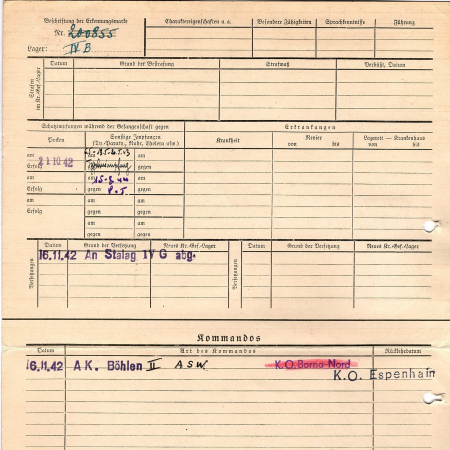 Beschriftung der Erkennungsmarke
Nr. 200855
Lager: IV B
Charaktereigenschaften u. a.
Besondere Fähigkeiten
Sprachkenntnisse
Führung
Strafen im Kr.-Gef.-Lager
Datum
Grund der Bestrafung
Strafmaß
Verbüßt, Datum
Schutzimpfungen während der Gefangenschaft gegen
Erkrankungen
Pocken
Sonstige Impfungen
(Ty.-Paraty., Ruhr, Cholera usw.)
Krankheit
Revier
von bis
Lazarett — Krankenhaus
von bis
am
21 10 42
Erfolg
am
Erfolg
am
Erfolg
am
gegen
am
15.3.44
gegen
am
gegen
am
gegen
am
gegen
am
gegen
am
gegen
am
gegen
Versetzungen
Datum
Grund der Versetzung
Neues Kr.-Gef.-Lager
16.11.42 An Stalag IV G abg.
Versetzungen
Datum
Grund der Versetzung
Neues Kr.-Gef.-Lager
Kommandos
Datum
Art des Kommandos
Rückkehrdatum
16.11.42 AK. Böhlen II ASW. K.O.Borna-Nord
K.O. Espenhain